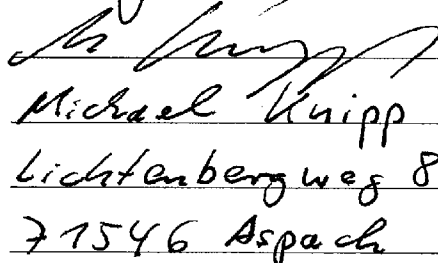 Michael Knipp
Lichtenbergweg 8
71546 Aspach